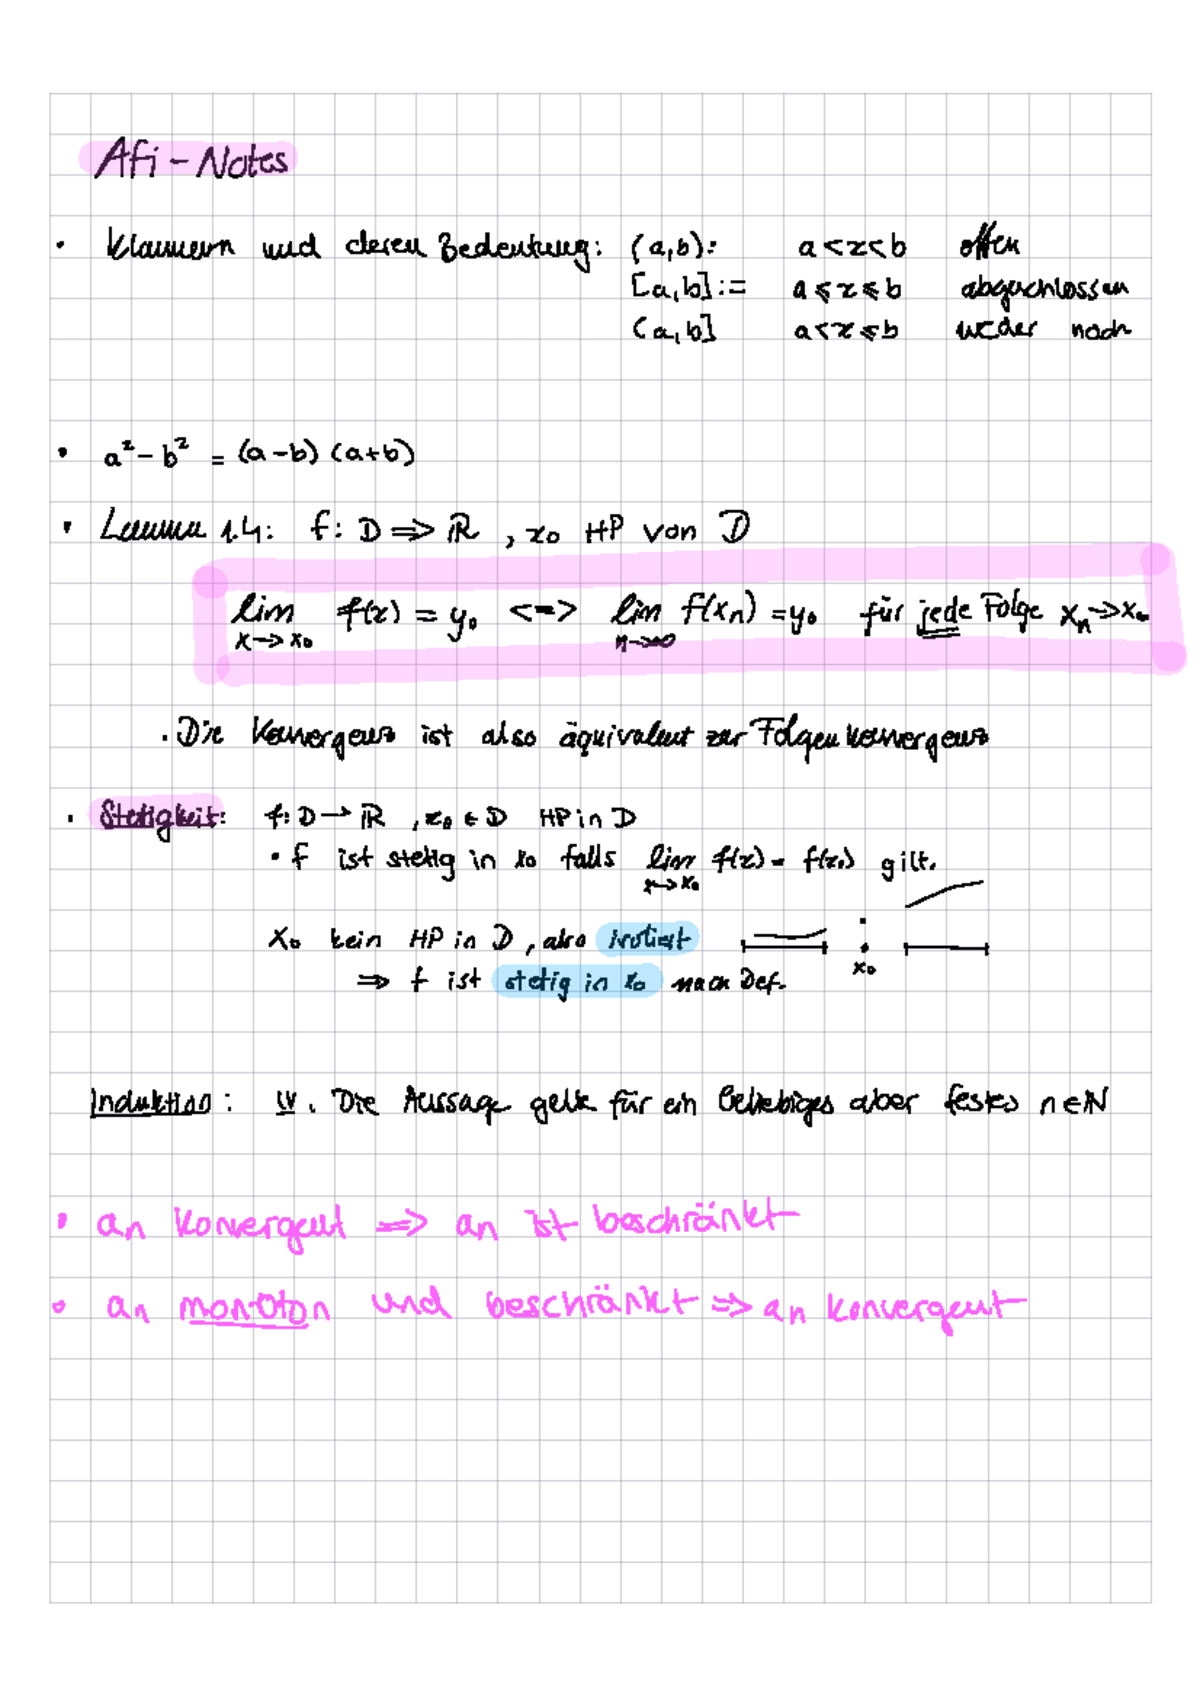 Afi - Notes
• Klammern und deren Bedeutung: (a,b): a < x < b offen
[a,b] := a ≤ x ≤ b abgeschlossen
(a,b] a < x ≤ b weder noch
• a² - b² = (a-b) (a+b)
• Lemma 1.4: f: D ⇒ ℝ , x₀ HP von D
lim f(x) = y₀ <=> lim f(xₙ) = y₀ für jede Folge xₙ → x₀
x → x₀ n → ∞
• Die Konvergenz ist also äquivalent zur Folgenkonvergenz
• Stetigkeit: f: D → ℝ , x₀ ∈ D HP in D
• f ist stetig in x₀ falls lim f(x) = f(x₀) gilt.
x → x₀
X₀ kein HP in D , also isoliert
x₀
⇒ f ist stetig in x₀ nach Def.
Induktion: IV. Die Aussage gelte für ein beliebiges aber festes n ∈ ℕ
• an konvergent => an ist beschränkt
• an monoton und beschränkt => an konvergent